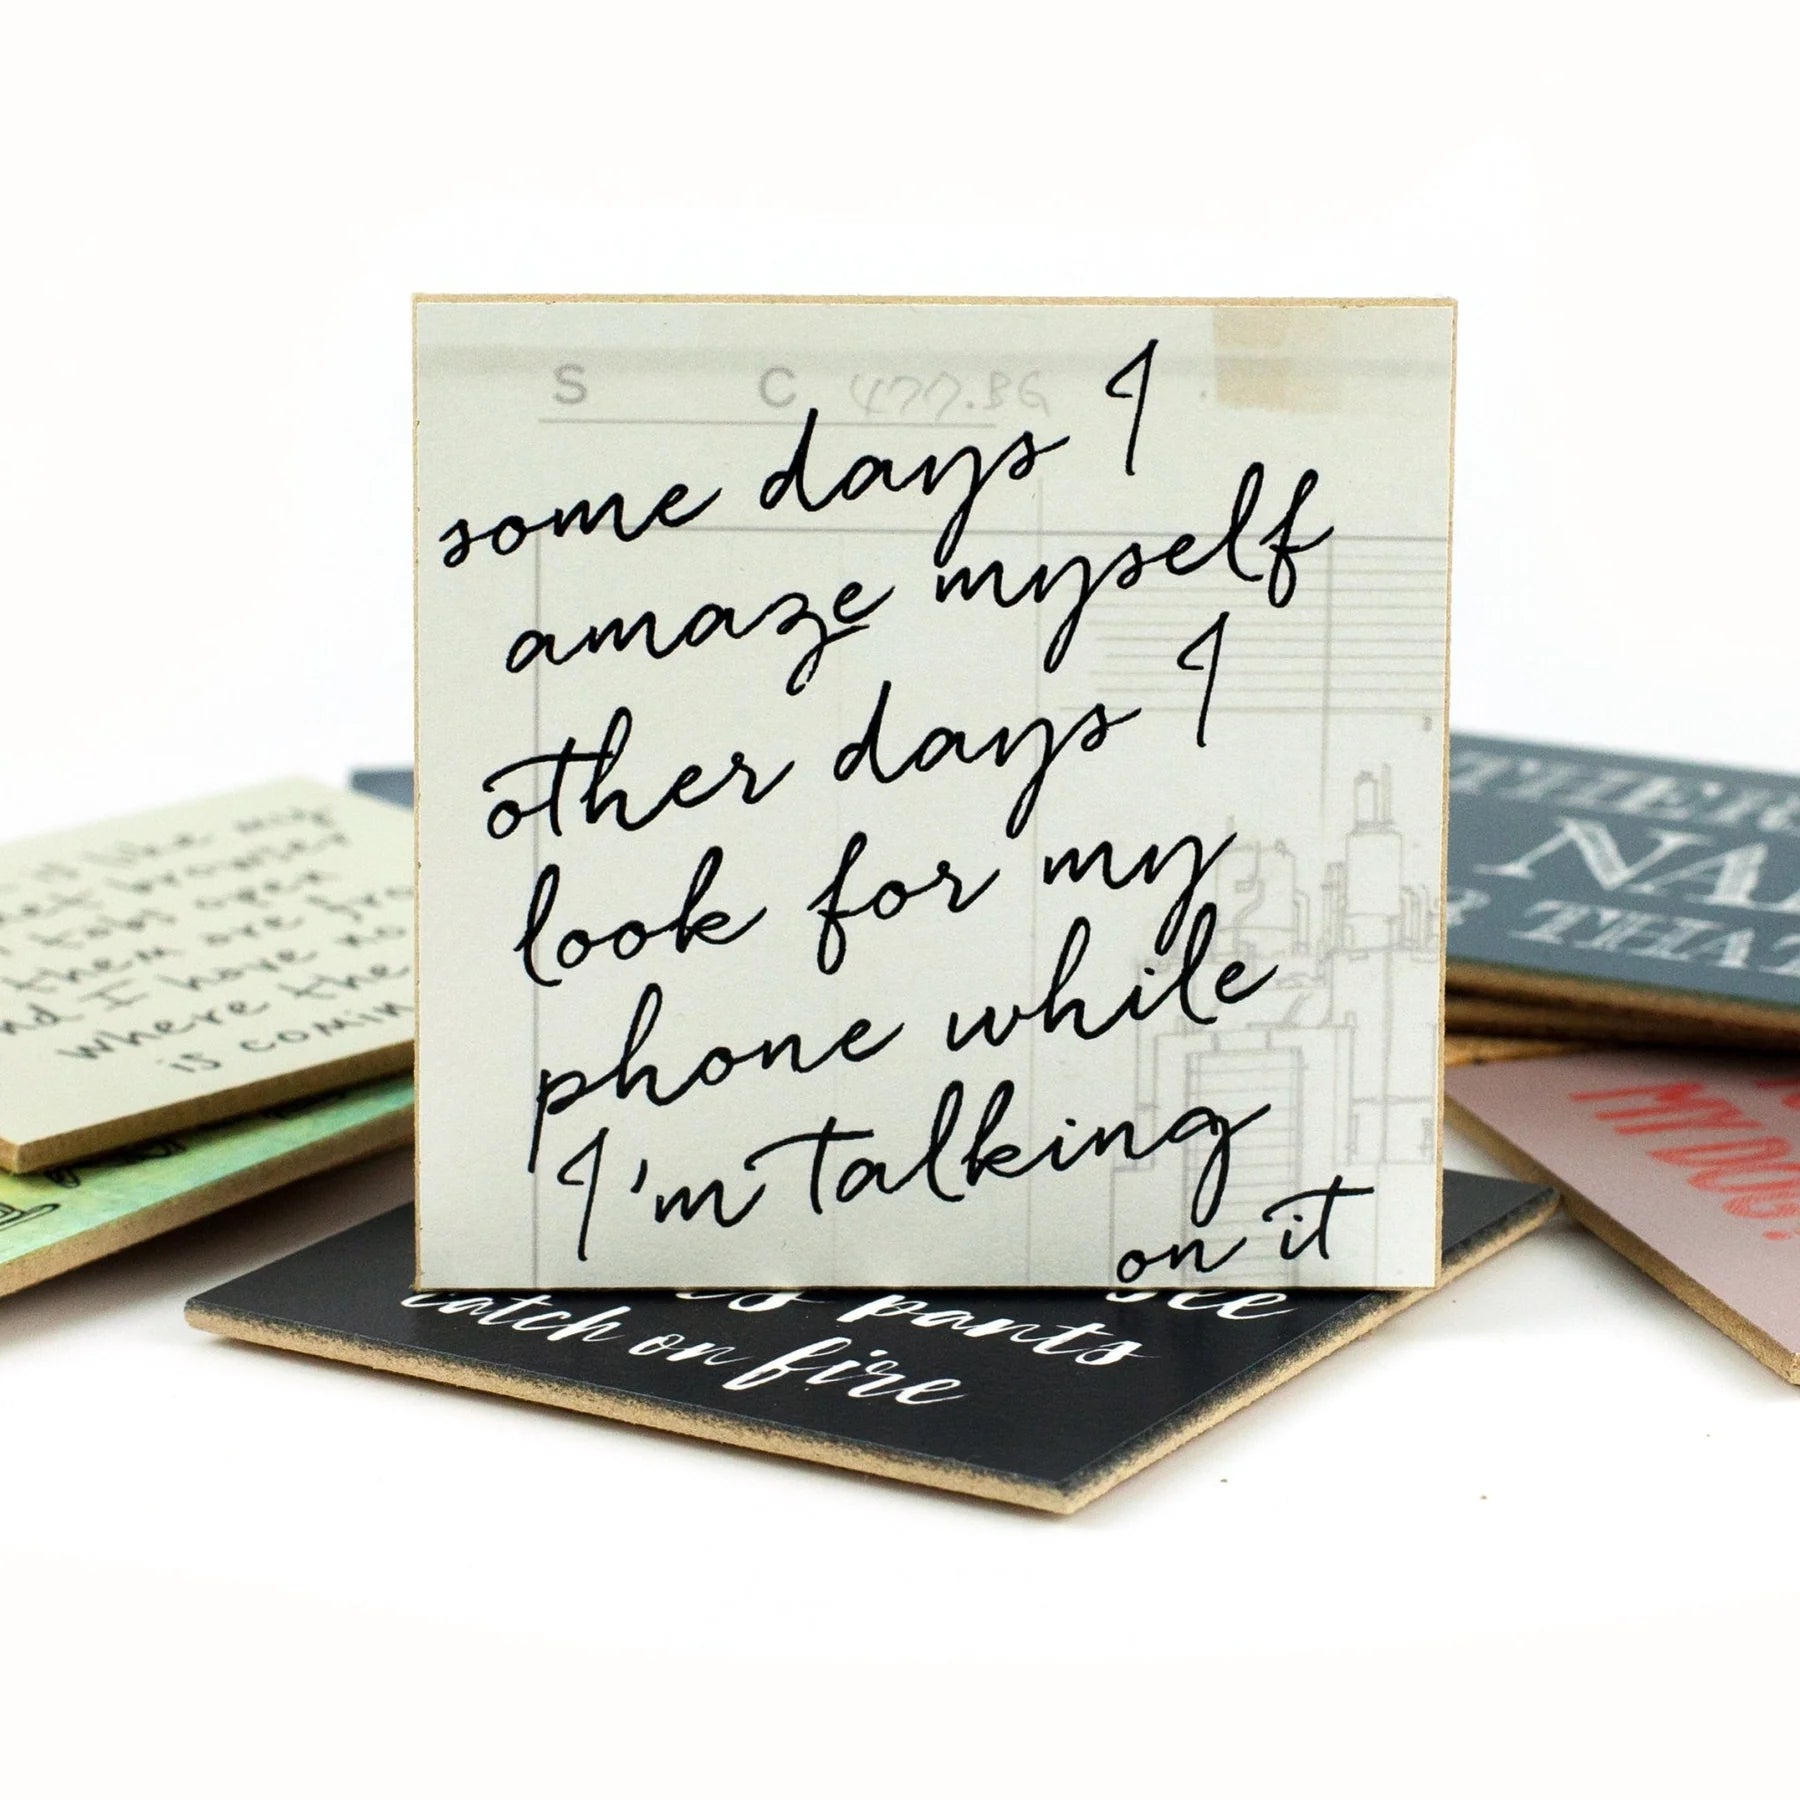 S C 477.BG
some days I
amaze myself
other days I
look for my
phone while
I'm talking
on it
is like my
browser
tabs open
them are
and I have no
where the
is comin
THER
NA
THAT
MY DOG?
see
pants
catch on fire